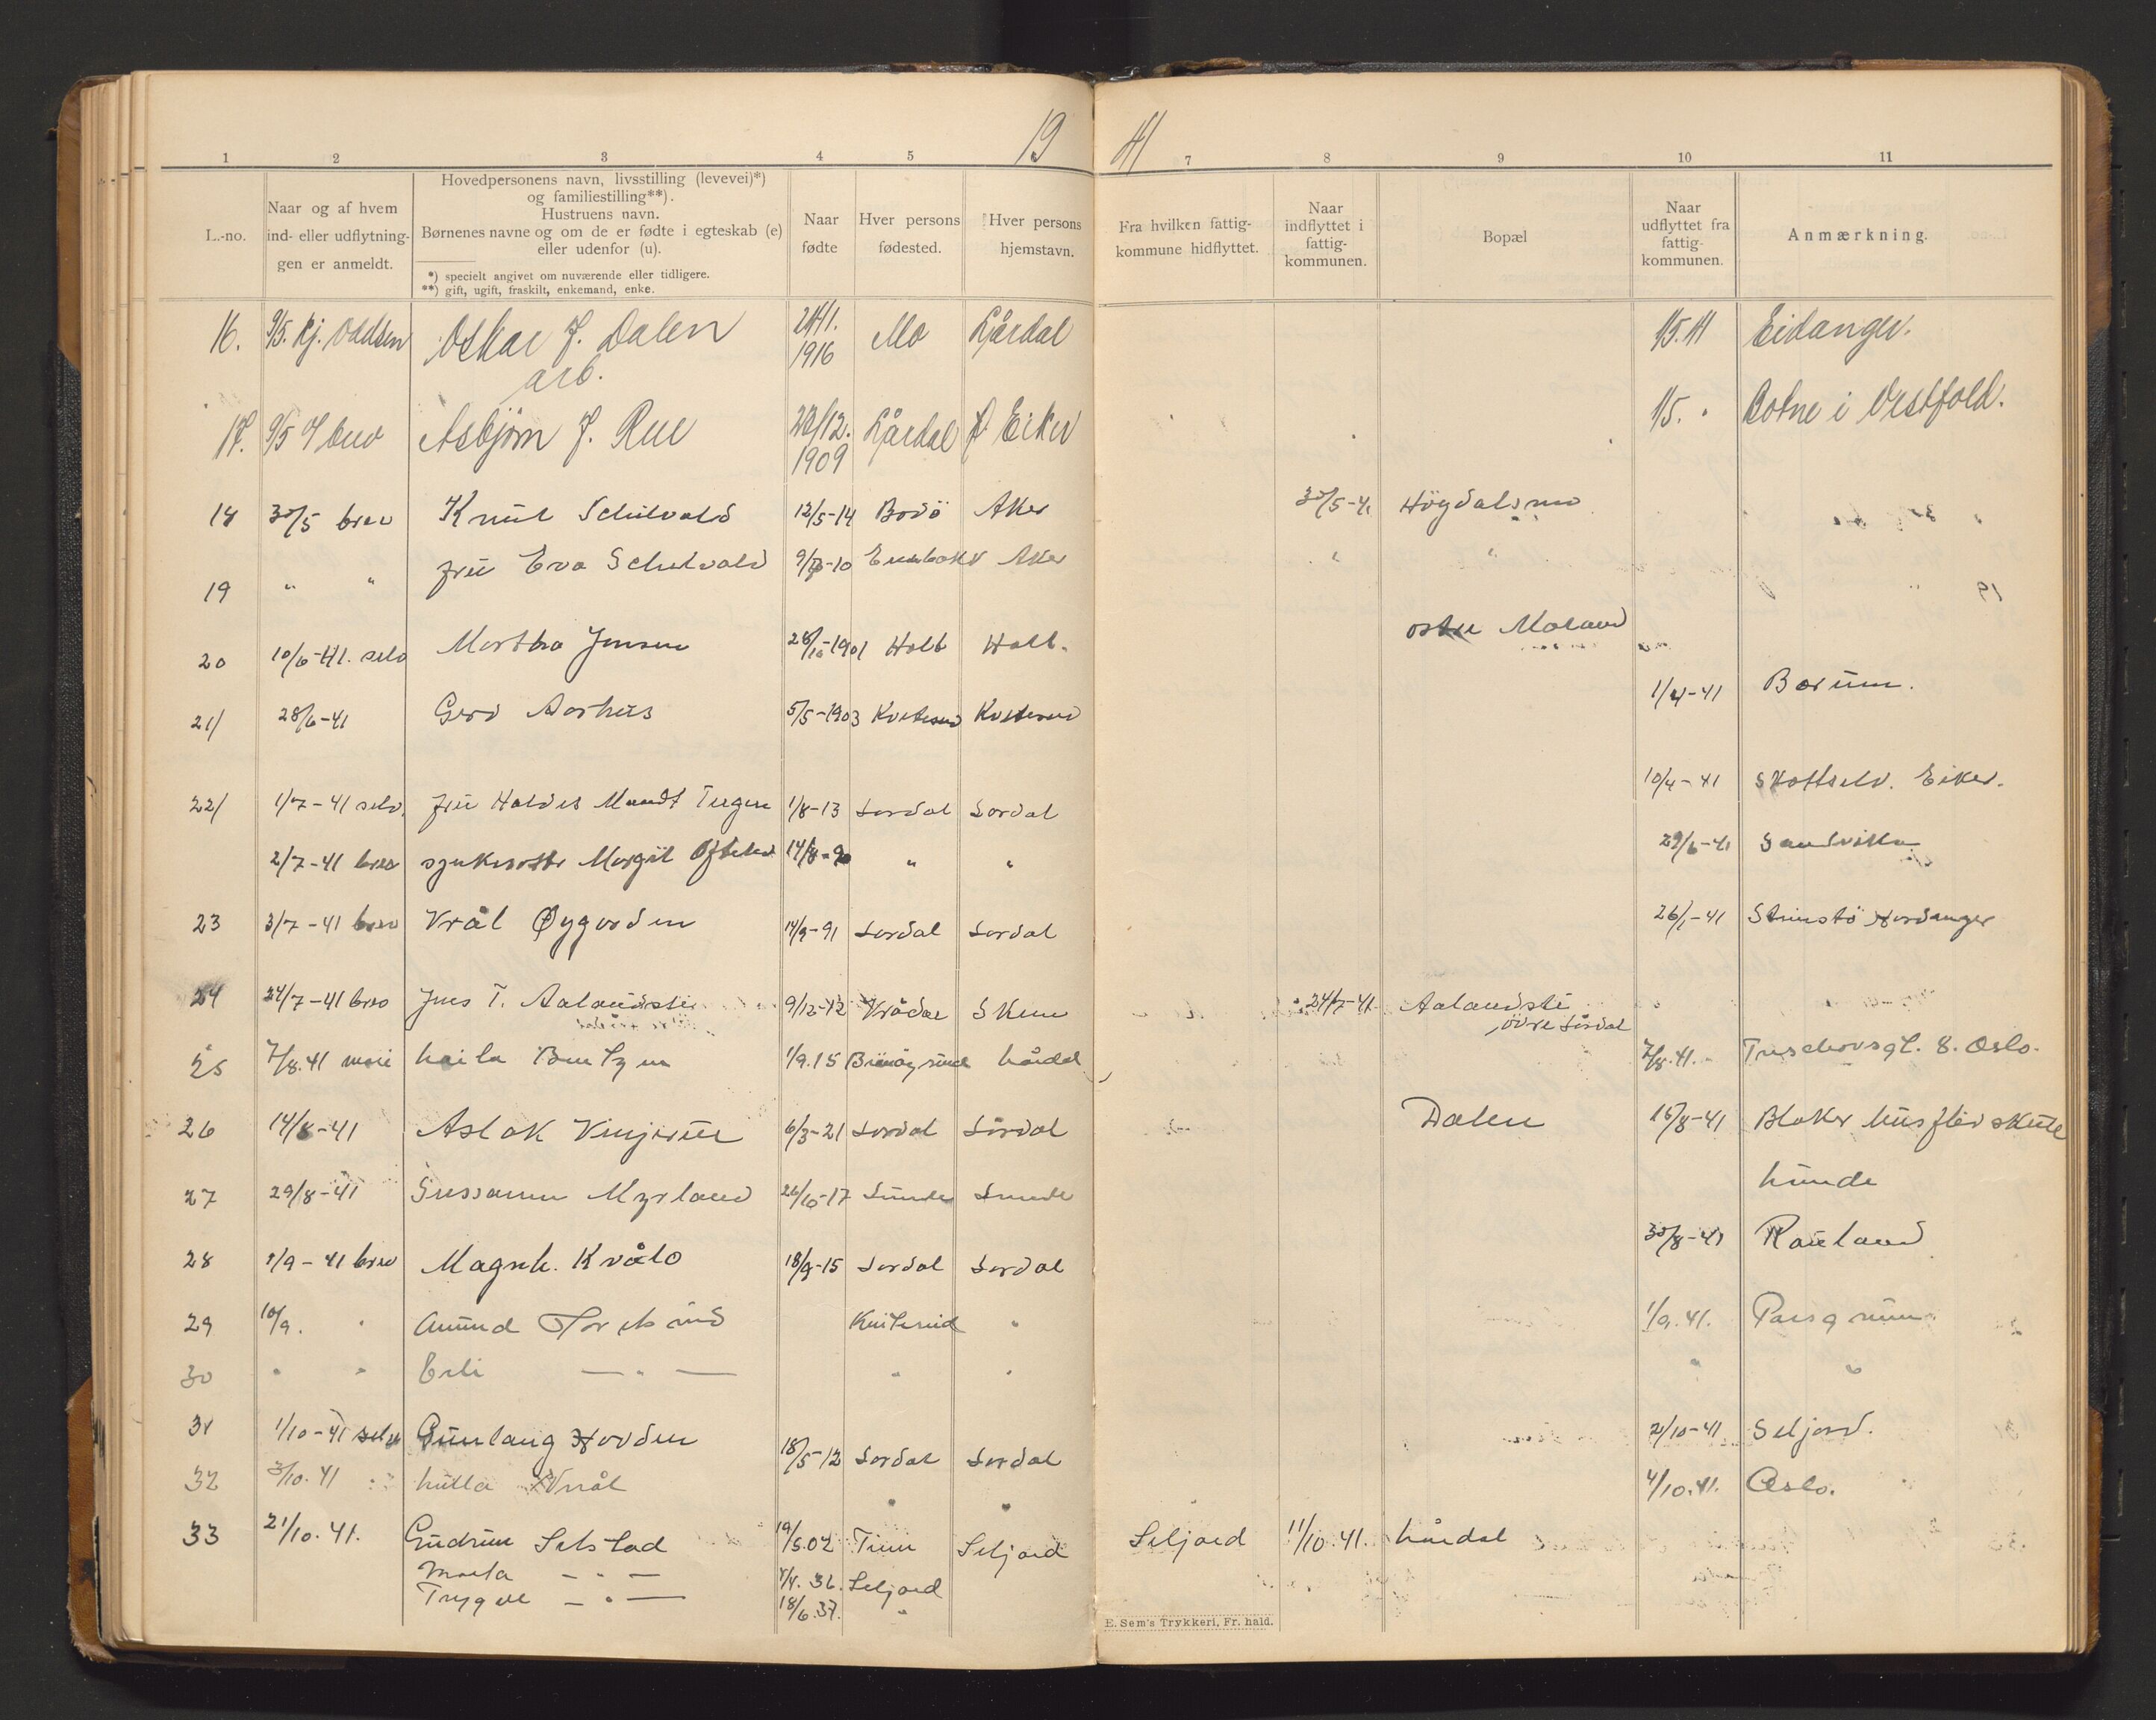 19 41
1 2 3 4 5 7 8 9 10 11
L.-no.
Naar og af hvem
ind- eller udflytnin-
gen er anmeldt.
Hovedpersonens navn, livsstilling (levevei)*)
og familiestilling**).
Hustruens navn.
Børnenes navne og om de er fødte i egteskab (e)
eller udenfor (u).
*) specielt angivet om nuværende eller tidligere.
**) gift, ugift, fraskilt, enkemand, enke.
Naar
fødte
Hver persons
fødested.
Hver persons
hjemstavn.
Fra hvilken fattig-
kommune hidflyttet.
Naar
indflyttet i
fattig-
kommunen.
Bopæl
Naar
udflyttet fra
fattig-
kommunen.
Anmærkning.
16. 9/5. Kj. Oddsen Oskar J. Dalen 24/1. Mo Lårdal 1/5.41 Eidanger.
arb. 1916
17. 9/5 brev Asbjørn J. Rue 23/12. Lårdal Ø Eiker 1/5. " Botne i Vestfold.
1909
18 30/5 brev Knut Schulvold 12/5-14 Bodö Aker 30/5-41 Högdalsmo
19 " " fru Eva Schulvold 10 Aker " "
20 10/6-41. selv Martha Jensen 1901 Holt Holt. Moland
21/ 28/6-41 Gerd Aarhus 5/5-1903 Kviteseid Kviteseid 1/4-41 Bærum.
22/ 1/7-41 selv. fru Haldis Mundt 1/8-13 Lårdal Lårdal 10/4-41 Skottselv. Eiker.
2/7-41 brev Margit 14/8-90 " " 29/6-41 Sandvika
23 3/7-41 brev Vrål Øygarden 14/9-91 Lårdal Lårdal 26/ -41 Hardanger
24 24/7-41 brev Jens T. Aalandsli 9/12-12 Vrådal Skien 24/7-41 Aalandsli
övre Lårdal
25 7/8.41 Laila Bentzen 1/9.15 Lårdal 7/8.41. Treschowsgt. 8. Oslo.
26 14/8-41 Aslak Vinjerui 6/3-21 Lårdal Lårdal Dalen 15/8-41 Blaker husflidskule
27 29/8-41 Myrland 26/10-17 Lunde Lunde Lunde
28 1/9-41 brev Magnh. Kvålo 18/9-15 Lårdal Lårdal 30/8-41 Rauland
29 10/9. " Amund Kviteseid " 1/9.41. Porsgrunn.
30 " " — " — " " " "
31 1/10-41 selv Gunlaug Hovden 18/5-12 Lårdal Lårdal 2/10-41 Seljord.
32 3/10.41 Vrål " " 4/10.41. Oslo.
33 21/10.41. Gudrun Selstad 19/5.02 Tinn Seljord Seljord 11/10.41. Lårdal
Marta — " — 1/4.36. Seljord
Trygve — " — 18/6.37. "
E. Sem's Trykkeri, Fr. hald.